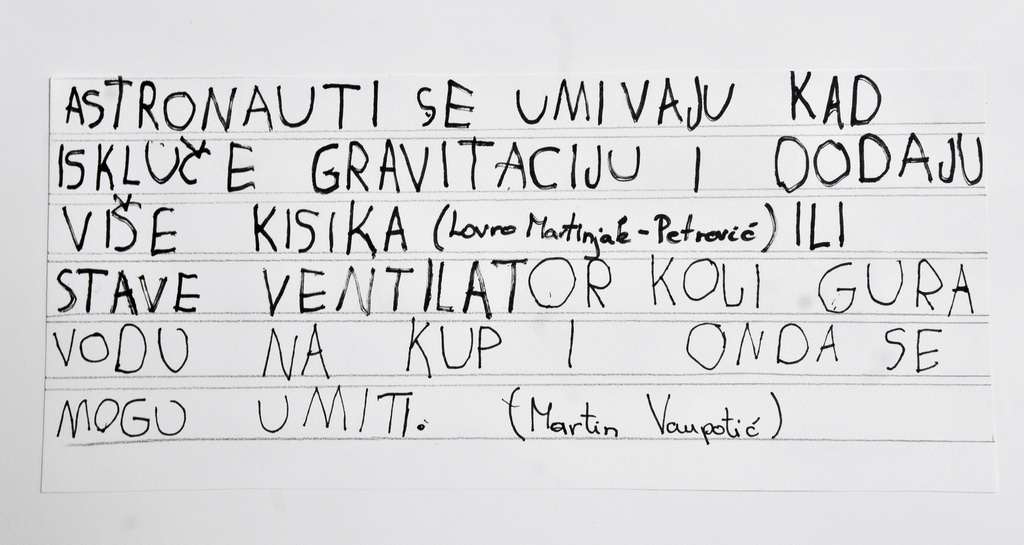 ASTRONAUTI SE UMIVAJU KAD
ISKLUČE GRAVITACIJU I DODAJU
VIŠE KISIKA (Lovro Martinjak-Petrović) ILI
STAVE VENTILATOR KOLI GURA
VODU NA KUP I ONDA SE
MOGU UMITI. (Martin Vaupotić)